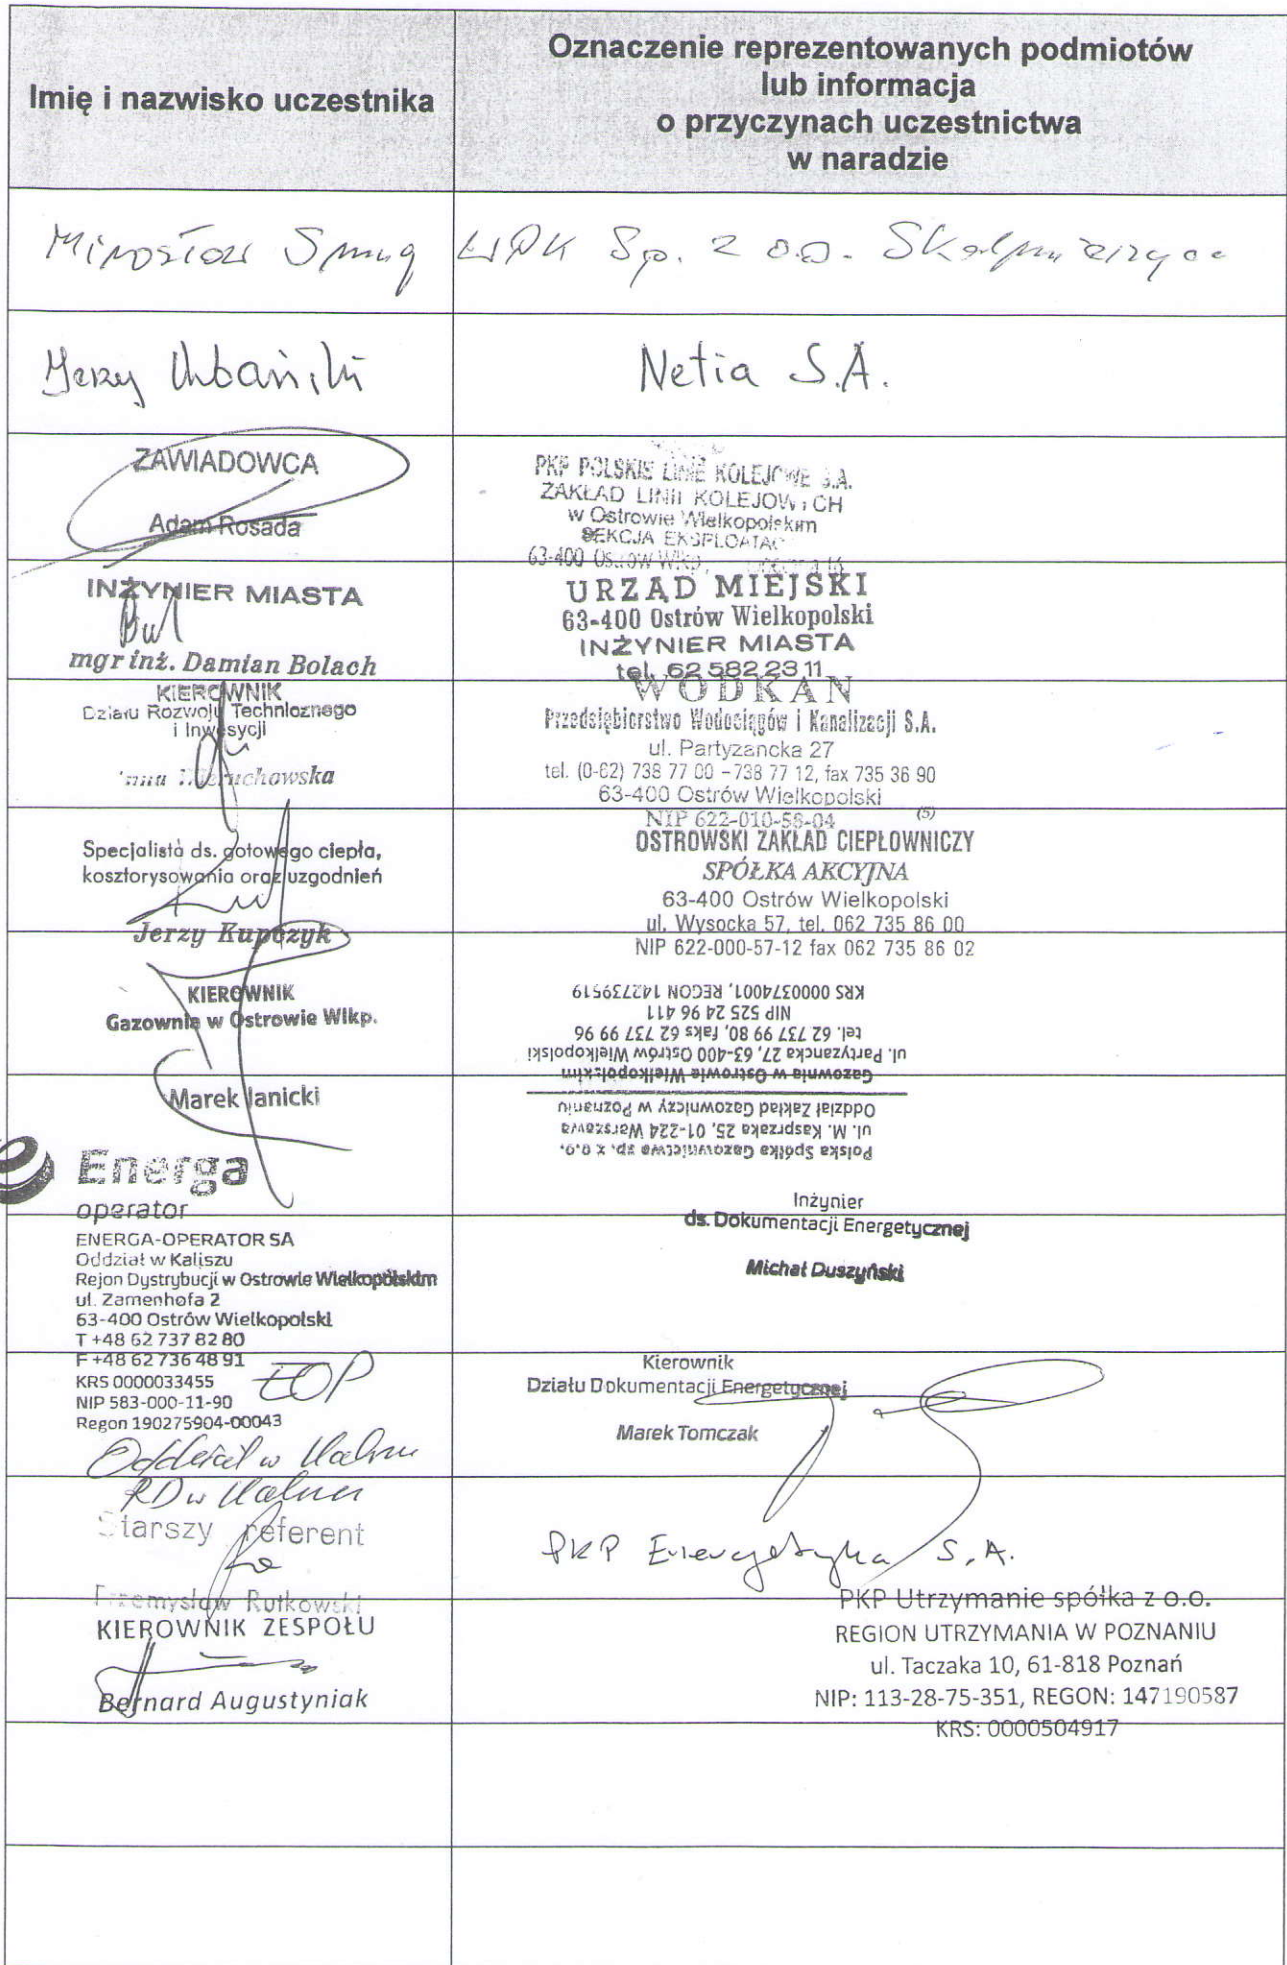 Imię i nazwisko uczestnika
Oznaczenie reprezentowanych podmiotów
lub informacja
o przyczynach uczestnictwa
w naradzie
Mirosław
Sp. z o.o.
Jerzy Urbański
Netia S.A.
ZAWIADOWCA
Adam Rosada
PKP POLSKIE LINIE KOLEJOWE S.A.
ZAKŁAD LINII KOLEJOWYCH
w Ostrowie Wielkopolskim
SEKCJA
63-400
INŻYNIER MIASTA
mgr inż. Damian Bolach
URZĄD MIEJSKI
63-400 Ostrów Wielkopolski
INŻYNIER MIASTA
tel. 62 582 23 11
KIEROWNIK
Działu Rozwoju Technicznego
i Inwesycji
WODKAN
Przedsiębiorstwo Wodociągów i Kanalizacji S.A.
ul. Partyzancka 27
tel. (0-62) 738 77 00 - 738 77 12, fax 735 36 90
63-400 Ostrów Wielkopolski
NIP 622-010-58-04 (5)
Specjalista ds. gotowego ciepła,
kosztorysowania oraz uzgodnień
Jerzy Kupczyk
OSTROWSKI ZAKŁAD CIEPŁOWNICZY
SPÓŁKA AKCYJNA
63-400 Ostrów Wielkopolski
ul. Wysocka 57, tel. 062 735 86 00
NIP 622-000-57-12 fax 062 735 86 02
KIEROWNIK
Gazownia w Ostrowie Wlkp.
Marek Janicki
Polska Spółka Gazownictwa sp. z o.o.
ul. M. Kasprzaka 25, 01-224 Warszawa
Oddział Zakład Gazowniczy w Poznaniu
Gazownia w Ostrowie Wielkopolskim
ul. Partyzancka 27, 63-400 Ostrów Wielkopolski
tel. 62 737 99 80, faks 62 737 99 96
NIP 525 24 96 411
KRS 0000374001, REGON 142739519
Energa
operator
ENERGA-OPERATOR SA
Oddział w Kaliszu
Rejon Dystrybucji w Ostrowie Wielkopolskim
ul. Zamenhofa 2
63-400 Ostrów Wielkopolski
T +48 62 737 82 80
F +48 62 736 48 91
KRS 0000033455
NIP 583-000-11-90
Regon 190275904-00043
Inżynier
ds. Dokumentacji Energetycznej
Michał Duszyński
EOP
Oddział w
RD w
Kierownik
Działu Dokumentacji Energetycznej
Marek Tomczak
Starszy referent
Przemysław Rutkowski
PKP Energetyka S.A.
KIEROWNIK ZESPOŁU
Bernard Augustyniak
PKP Utrzymanie spółka z o.o.
REGION UTRZYMANIA W POZNANIU
ul. Taczaka 10, 61-818 Poznań
NIP: 113-28-75-351, REGON: 147190587
KRS: 0000504917